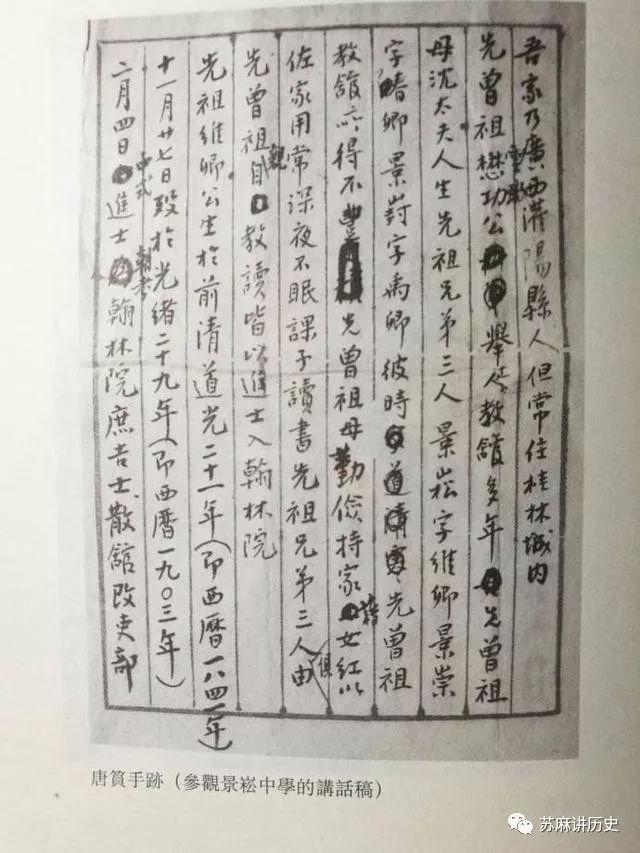 吾家乃廣西灌陽縣人但常住桂林城內
先曾祖懋功公舉人教館多年先曾祖
母沈太夫人生先祖兄弟三人景崧字維卿景崇
字春卿景葑字禹卿彼時先曾祖
教館所得不豐先曾祖母勤儉持家藉女紅以
佐家用常深夜不眠課子讀書先祖兄弟三人由
先曾祖親自教讀皆以進士入翰林院
先祖維卿公生於前清道光二十一年(即西曆一八四一年)
十一月廿七日歿於光緒二十九年(即西曆一九〇三年)
二月四日中式進士朝考翰林院庶吉士散館改吏部
唐篔手跡(參觀景崧中學的講話稿)
苏麻讲历史